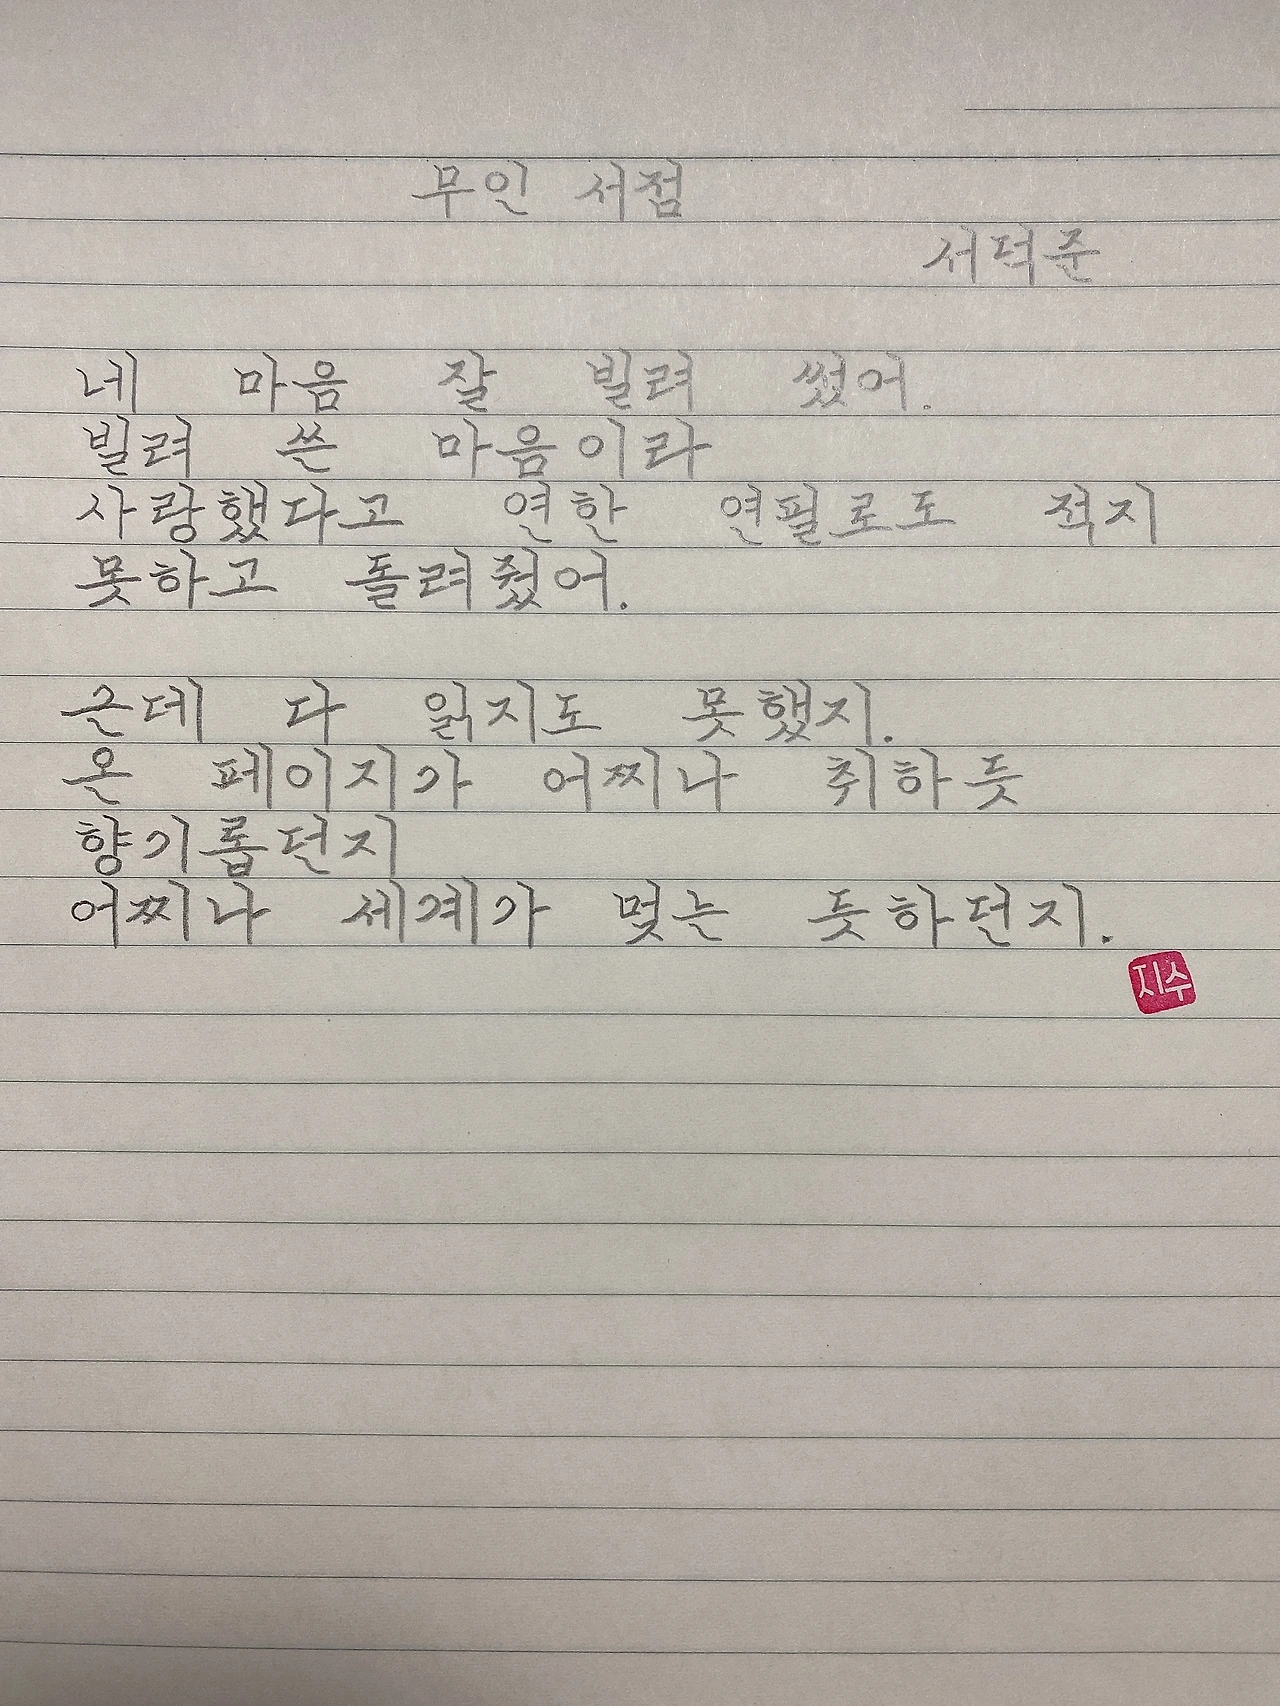 무인 서점
서덕준
네 마음 잘 빌려 썼어.
빌려 쓴 마음이라
사랑했다고 연한 연필로도 적지
못하고 돌려줬어.
근데 다 읽지도 못했지.
온 페이지가 어찌나 취하듯
향기롭던지
어찌나 세계가 멎는 듯하던지.
지수